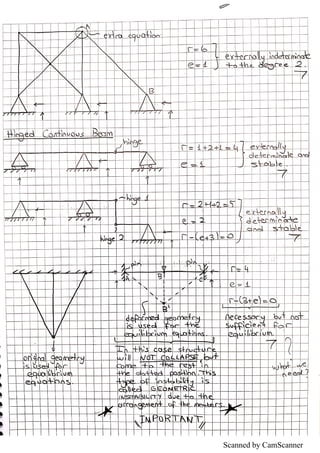 A
extra equation
r=6
e=1
externally indeterminate
to the degree 2.
B
Hinged Continuous Beam
hinge
r=1+2+1=4
e=1
externally
determinate and
stable.
hinge 1
hinge 2
r=2+1+2=5
e=2
r-(e+3)=0
externally
determinate
and stable
pin
pin
A
B
C
B'
r=4
e=1
r-(3+e)=0
original geometry
is used for
equilibrium
equations.
deformed geometry
is used for the
equilibrium equations.
necessary but not
sufficient for
equilibrium.
what we
need?
In this case structure
will NOT COLLAPSE, but
come to the rest in
the dotted position. This
type of instability is
called GEOMETRIC
INSTABILITY due to the
arrangement of the members.
IMPORTANT
Scanned by CamScanner